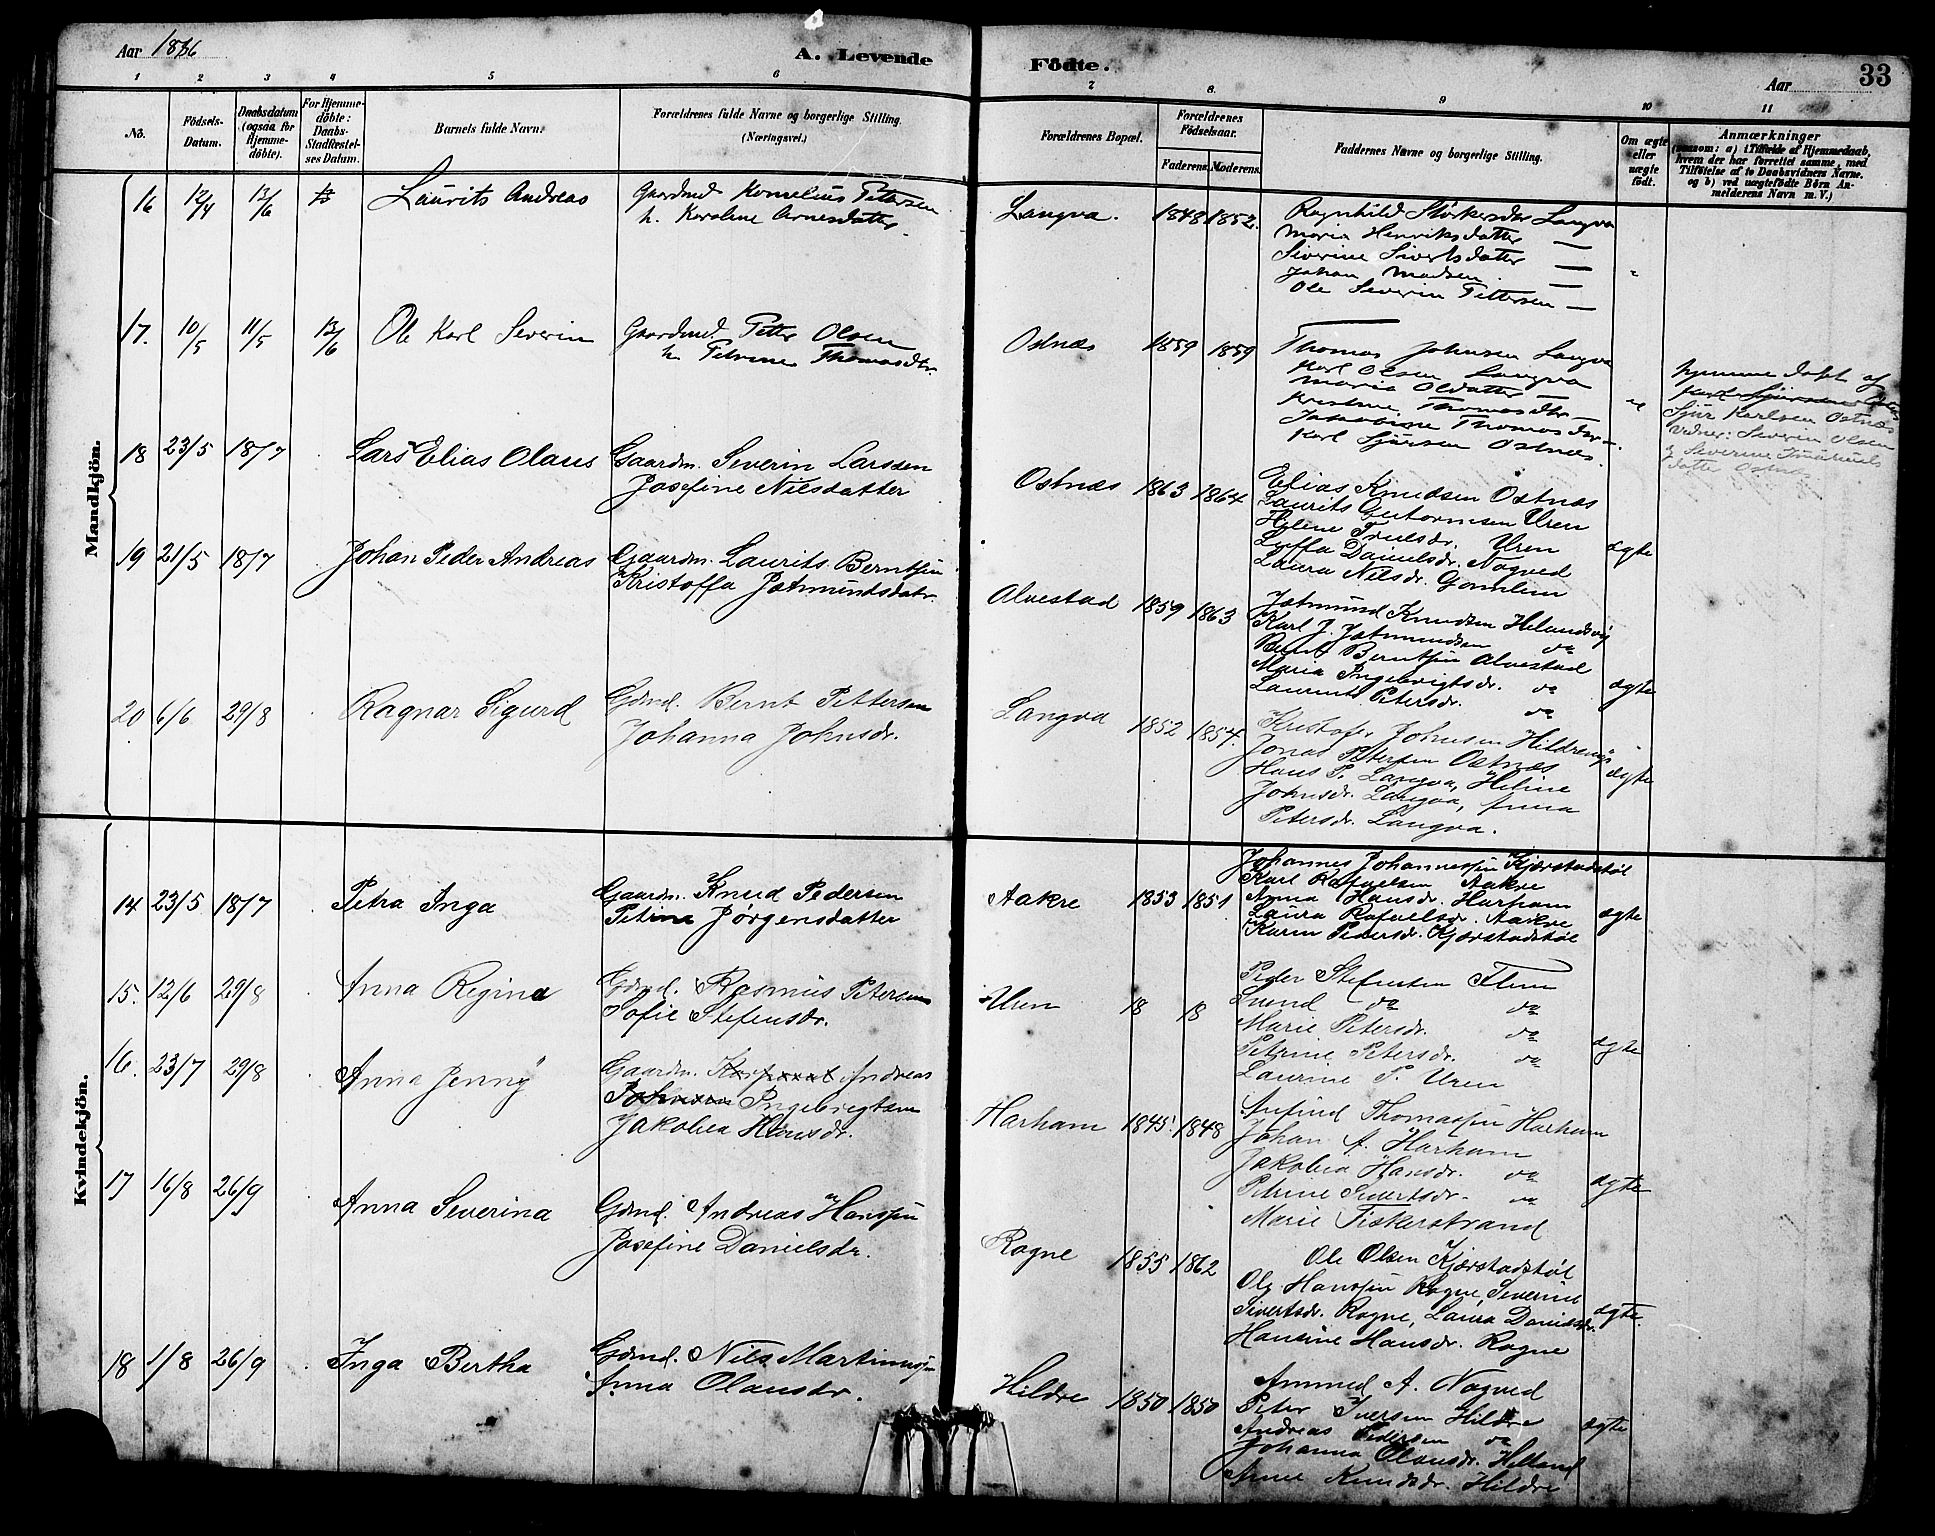 Aar 1886
A. Levende Födte.
Aar 33
1 2 3 4 5 6 7 8. 9 10 11
No.
Födsels-
Datum.
Daabsdatum
(ogsaa for
Hjemme-
döbte).
For Hjemme-
döbte:
Daabs-
Stadfæstel-
ses Datum.
Barnets fulde Navn.
Forældrenes fulde Navne og borgerlige Stilling.
(Næringsvei.)
Forældrenes Bopæl.
Forældrenes
Födselsaar.
Faderens. Moderens.
Faddernes Navne og borgerlige Stilling.
Om ægte
eller
uægte
födt.
Anmærkninger
(saasom: a) i Tilfælde af Hjemmedaab,
hvem der har forrettet samme, med
Tilföielse af to Daabsvidners Navne.
og b) ved uægtefödte Börn An-
melderens Navn m. V.)
Mandkjön.
16 12/4 13/6 Laurits Andreas
Gaardmd Kornelius Pettersen
h. Karoline Arnesdatter.
Langva. 1848 1852.
Ragnhild Størkersdr Langva
Maria Henriksdatter —
Siverine Sivertsdatter —
Johan Madsen —
Ole Severin Pettersen —
17. 10/5 11/5 13/6 Ole Karl Severin
Gaardmd. Petter Olsen
h. Petrine Thomasdtr.
Ostnæs 1859 1859
Thomas Johnsen Langva
Karl Olsen Langva
Maria Olsdatter —
Kristine Thomasdtr —
Jakobine Thomasdtr —
Karl Sjursen Ostnæs.
hjemmedøbt af
Karl Sjursen Ostnæs
Sjur Karlsen Ostnæs
vidner: Severin Olsen
og Severine
datter Ostnæs
18 23/5 18/7 Lars Elias Olaus
Gaardm. Severin Larssen
Josefine Nilsdatter
Ostnæs 1863 1864
Elias Knudsen Ostnæs
Laurits Guttormsen Uren
Helene Truelsdr. Uren
Luffa Danielsdr. Nogved
Laura Nilsdr. Gamlem
ægte
19 21/5 18/7 Johan Peder Andreas
Gaardm. Laurits Berntsen
Kristoffa Jetmundsdatr.
Alvestad 1859 1863
Jetmund Knudsen Helandsvig
Karl J. Jetmundsen do
Bernt Berntsen Alvestad
Maria Ingebrigtsdr. do
Laurentse Petersdr. do
ægte
20 6/6 29/8 Ragnar Sigurd
Gdmd. Bernt Pettersen
Johanna Johnsdr.
Langva 1852 1854.
Kristofer Johnsen Hildrevig
Jonas Petersen Ostnæs
Hans P. Langva, Heline
Johnsdr. Langva, Anna
Petersdr. Langva.
ægte
Kvindekjön.
14 23/5 18/7 Petra Inga
Gaardm. Knud Pedersen
Petrina Jørgensdatter
Aakre 1853 1851
Johannes Johannessen Kjærstadstøl
Karl Rafaelsen Aakre
Anna Hansdr. Harham
Laura Rafaelsdr. Aakre
Karen Pedersdr. Kjærstadstøl
ægte
15. 12/6 29/8 Anna Regina
Gdmd. Rasmus Petersen
Sofie Stefensdr.
Uren 18 18
Peder Stefensen Flem
Svend do do
Marie Petersdr. do
Petrine Petersdr. do
Laurine P. Uren
ægte
16. 23/7 29/8 Anna Jenny
Gaardm. Andreas
Johnsen Ingebrigtsen
Jakobea Hansdr.
Harham 1845. 1848
Anfind Thomassen Harham
Johan A. Harham
Jakobea Hansdr. do
Petrine Sivertsdr. do
Marie Fiskerstrand
ægte
17 16/8 26/9 Anna Severina
Gdmd. Andreas Hanssen
Josefine Danielsdr.
Rogne 1855 1862
Ole Olsen Kjærstadstøl
Ole Hanssen Rogne, Severine
Sivertsdr. Rogne, Laura Danielsdr.
Hansine Hansdr. Rogne
ægte.
18 1/8 26/9 Inga Bertha
Gdmd. Nils Martinussen
Anna Olausdr.
Hildre 1850 1850
Ammed A. Nogved
Peter Iversen Hildre
Andreas Pedersen do
Johanna Olausdr. Helland
Anne Knudsdr. Hildre
ægte